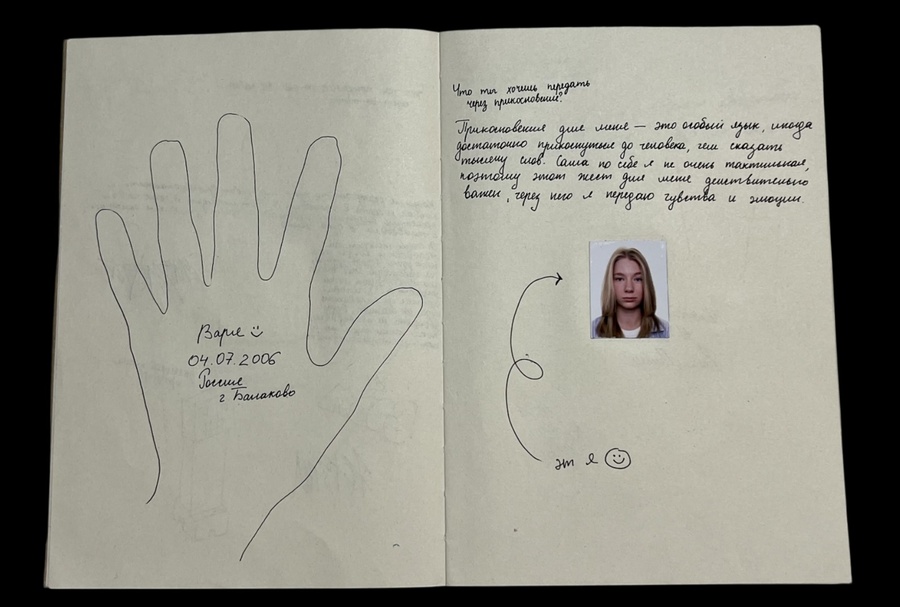 Варя
04.07.2006
Россия
г Балаково
Что ты хочешь передать
через прикосновение?
Прикосновения для меня — это особый язык, иногда
достаточно прикоснуться до человека, чем сказать
тысячу слов. Сама по себе я не очень тактильная,
поэтому этот жест для меня действительно
важен, через него я передаю чувства и эмоции.
это я